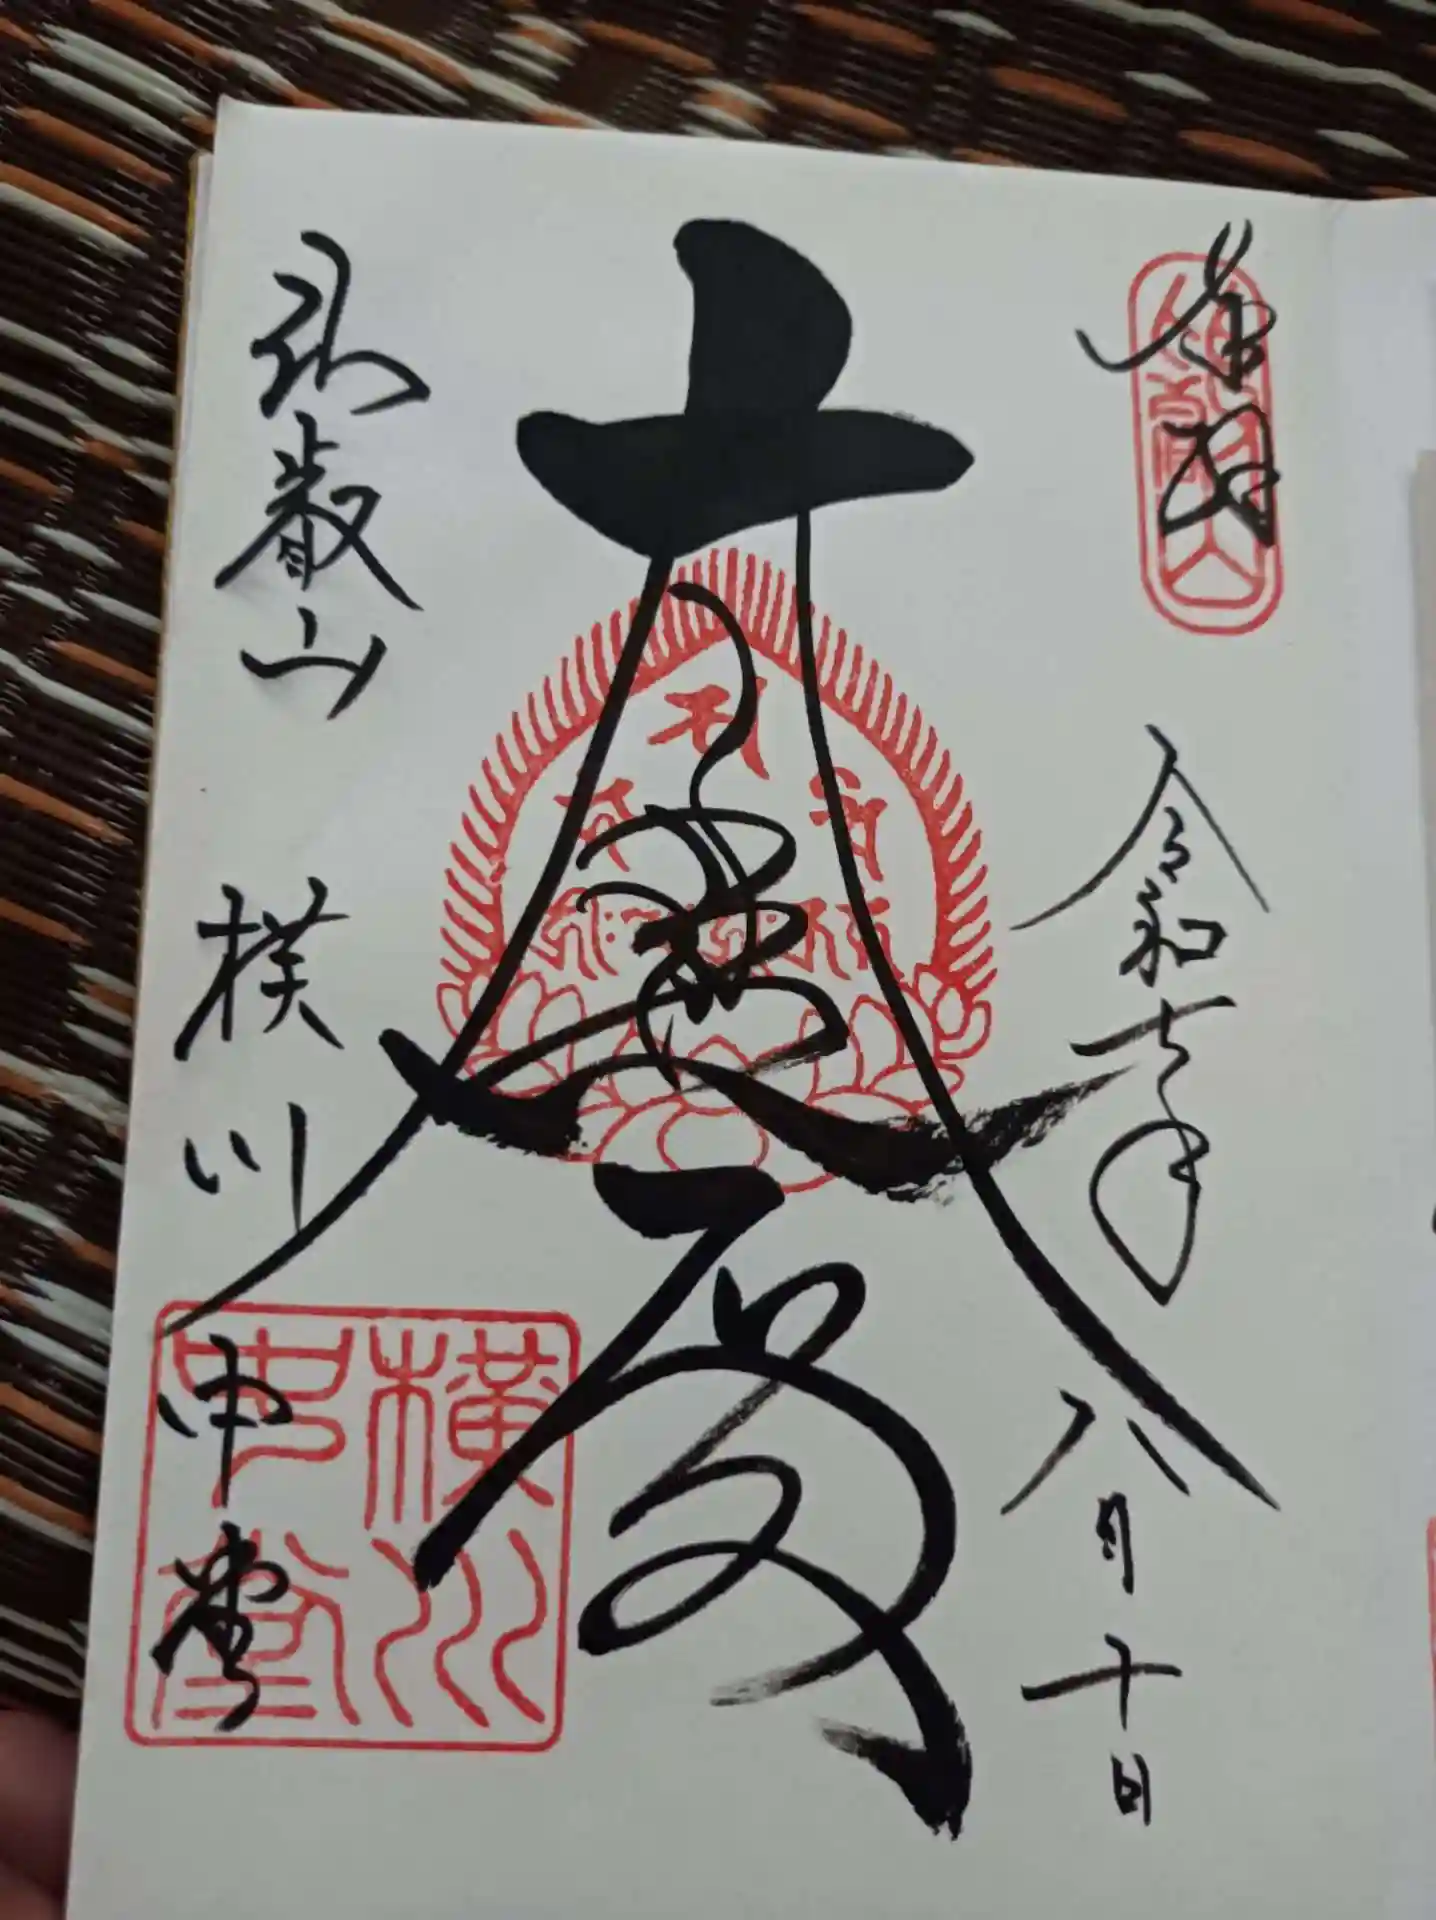 奉拝
比叡山
令和七年八月十日
大悲殿
比叡山 横川中堂
横川
中堂